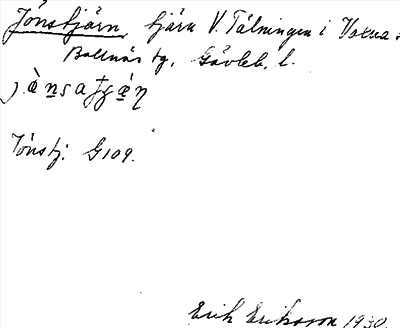 Jönstjärn, tjärn V. Tälningen i Voxna s
Bollnäs tg, Gävleb. l.
Jönstj. G109.
Erik Eriksson 1930.